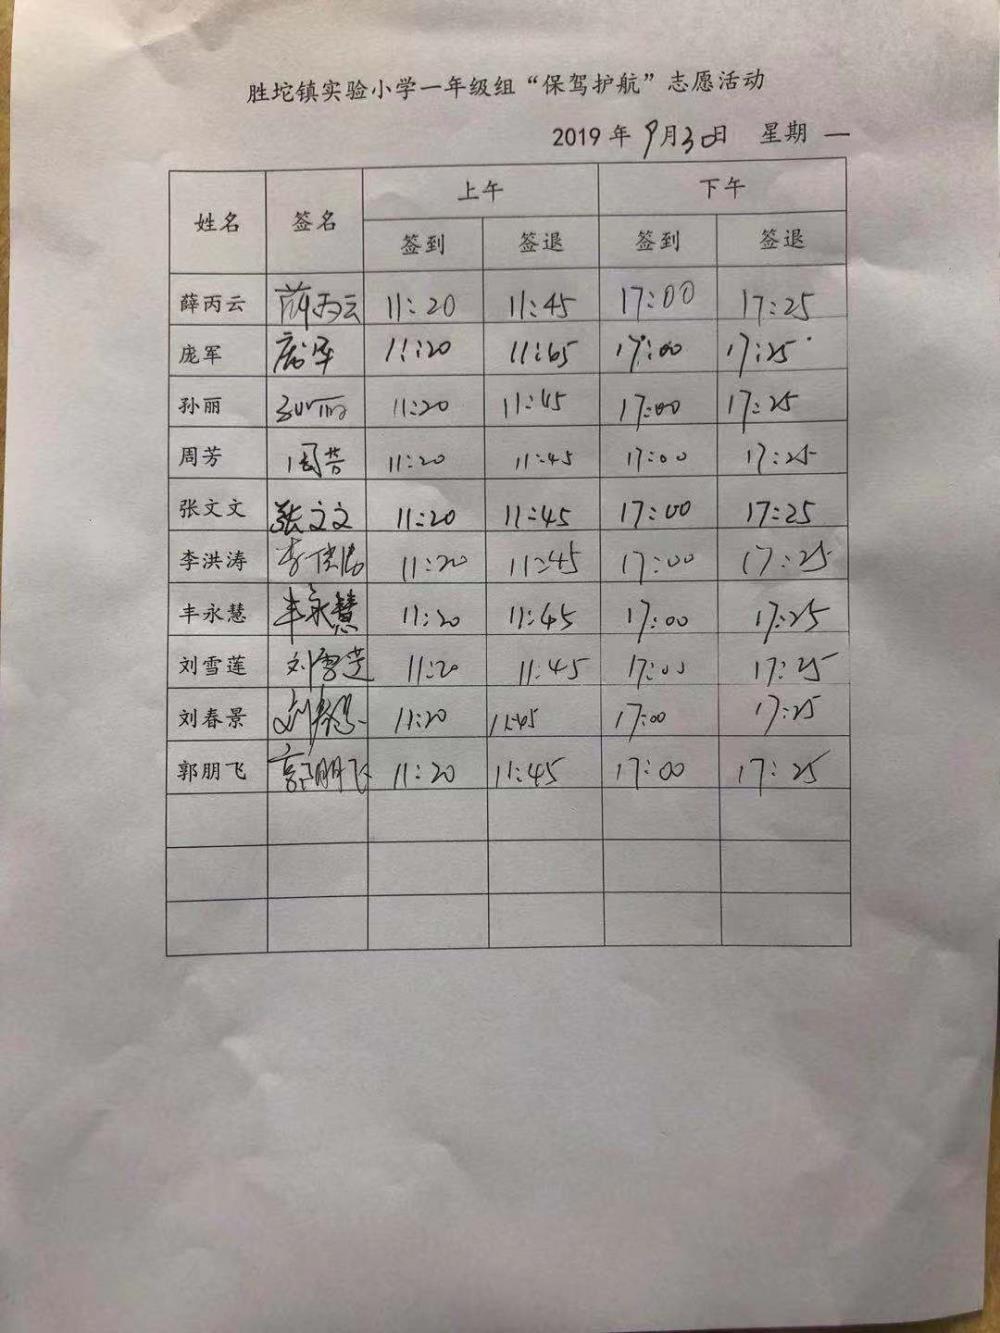 胜坨镇实验小学一年级组“保驾护航”志愿活动
2019 年 9月30日 星期 一
姓名 签名 上午 下午
签到 签退 签到 签退
薛丙云 薛丙云 11:20 11:45 17:00 17:25
庞军 庞军 11:20 11:45 17:00 17:25
孙丽 孙丽 11:20 11:45 17:00 17:25
周芳 周芳 11:20 11:45 17:00 17:25
张文文 张文文 11:20 11:45 17:00 17:25
李洪涛 李洪涛 11:20 11:45 17:00 17:25
丰永慧 丰永慧 11:20 11:45 17:00 17:25
刘雪莲 刘雪莲 11:20 11:45 17:00 17:25
刘春景 刘春景 11:20 11:45 17:00 17:25
郭朋飞 郭朋飞 11:20 11:45 17:00 17:25